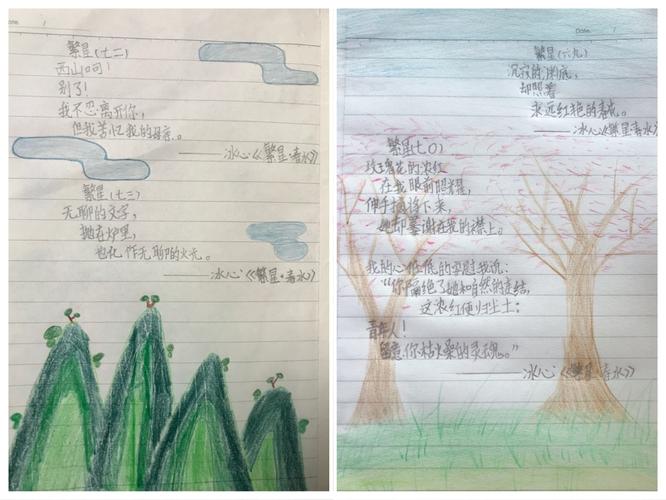 Date. /
繁星(七二)
西山呵!
别了!
我不忍离开你,
但我苦忆我的母亲。
——冰心《繁星·春水》
繁星(七三)
无聊的文字,
抛在炉里,
也化作无聊的火光。
——冰心《繁星·春水》
Date. /
繁星(六九)
沉寂的渊底,
却照着
永远红艳的春花。
——冰心《繁星·春水》
繁星七〇)
玫瑰花的浓红
在我眼前照耀,
伸手摘将下来,
她却萎谢在我的襟上。
我的心低低的安慰我说:
“你隔绝了她和自然的连结,
这浓红便归尘土;
青年人!
留意你枯燥的灵魂。”
——冰心《繁星·春水》